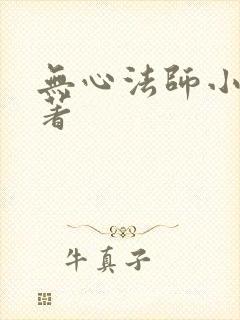 無心法師小
著
牛真子